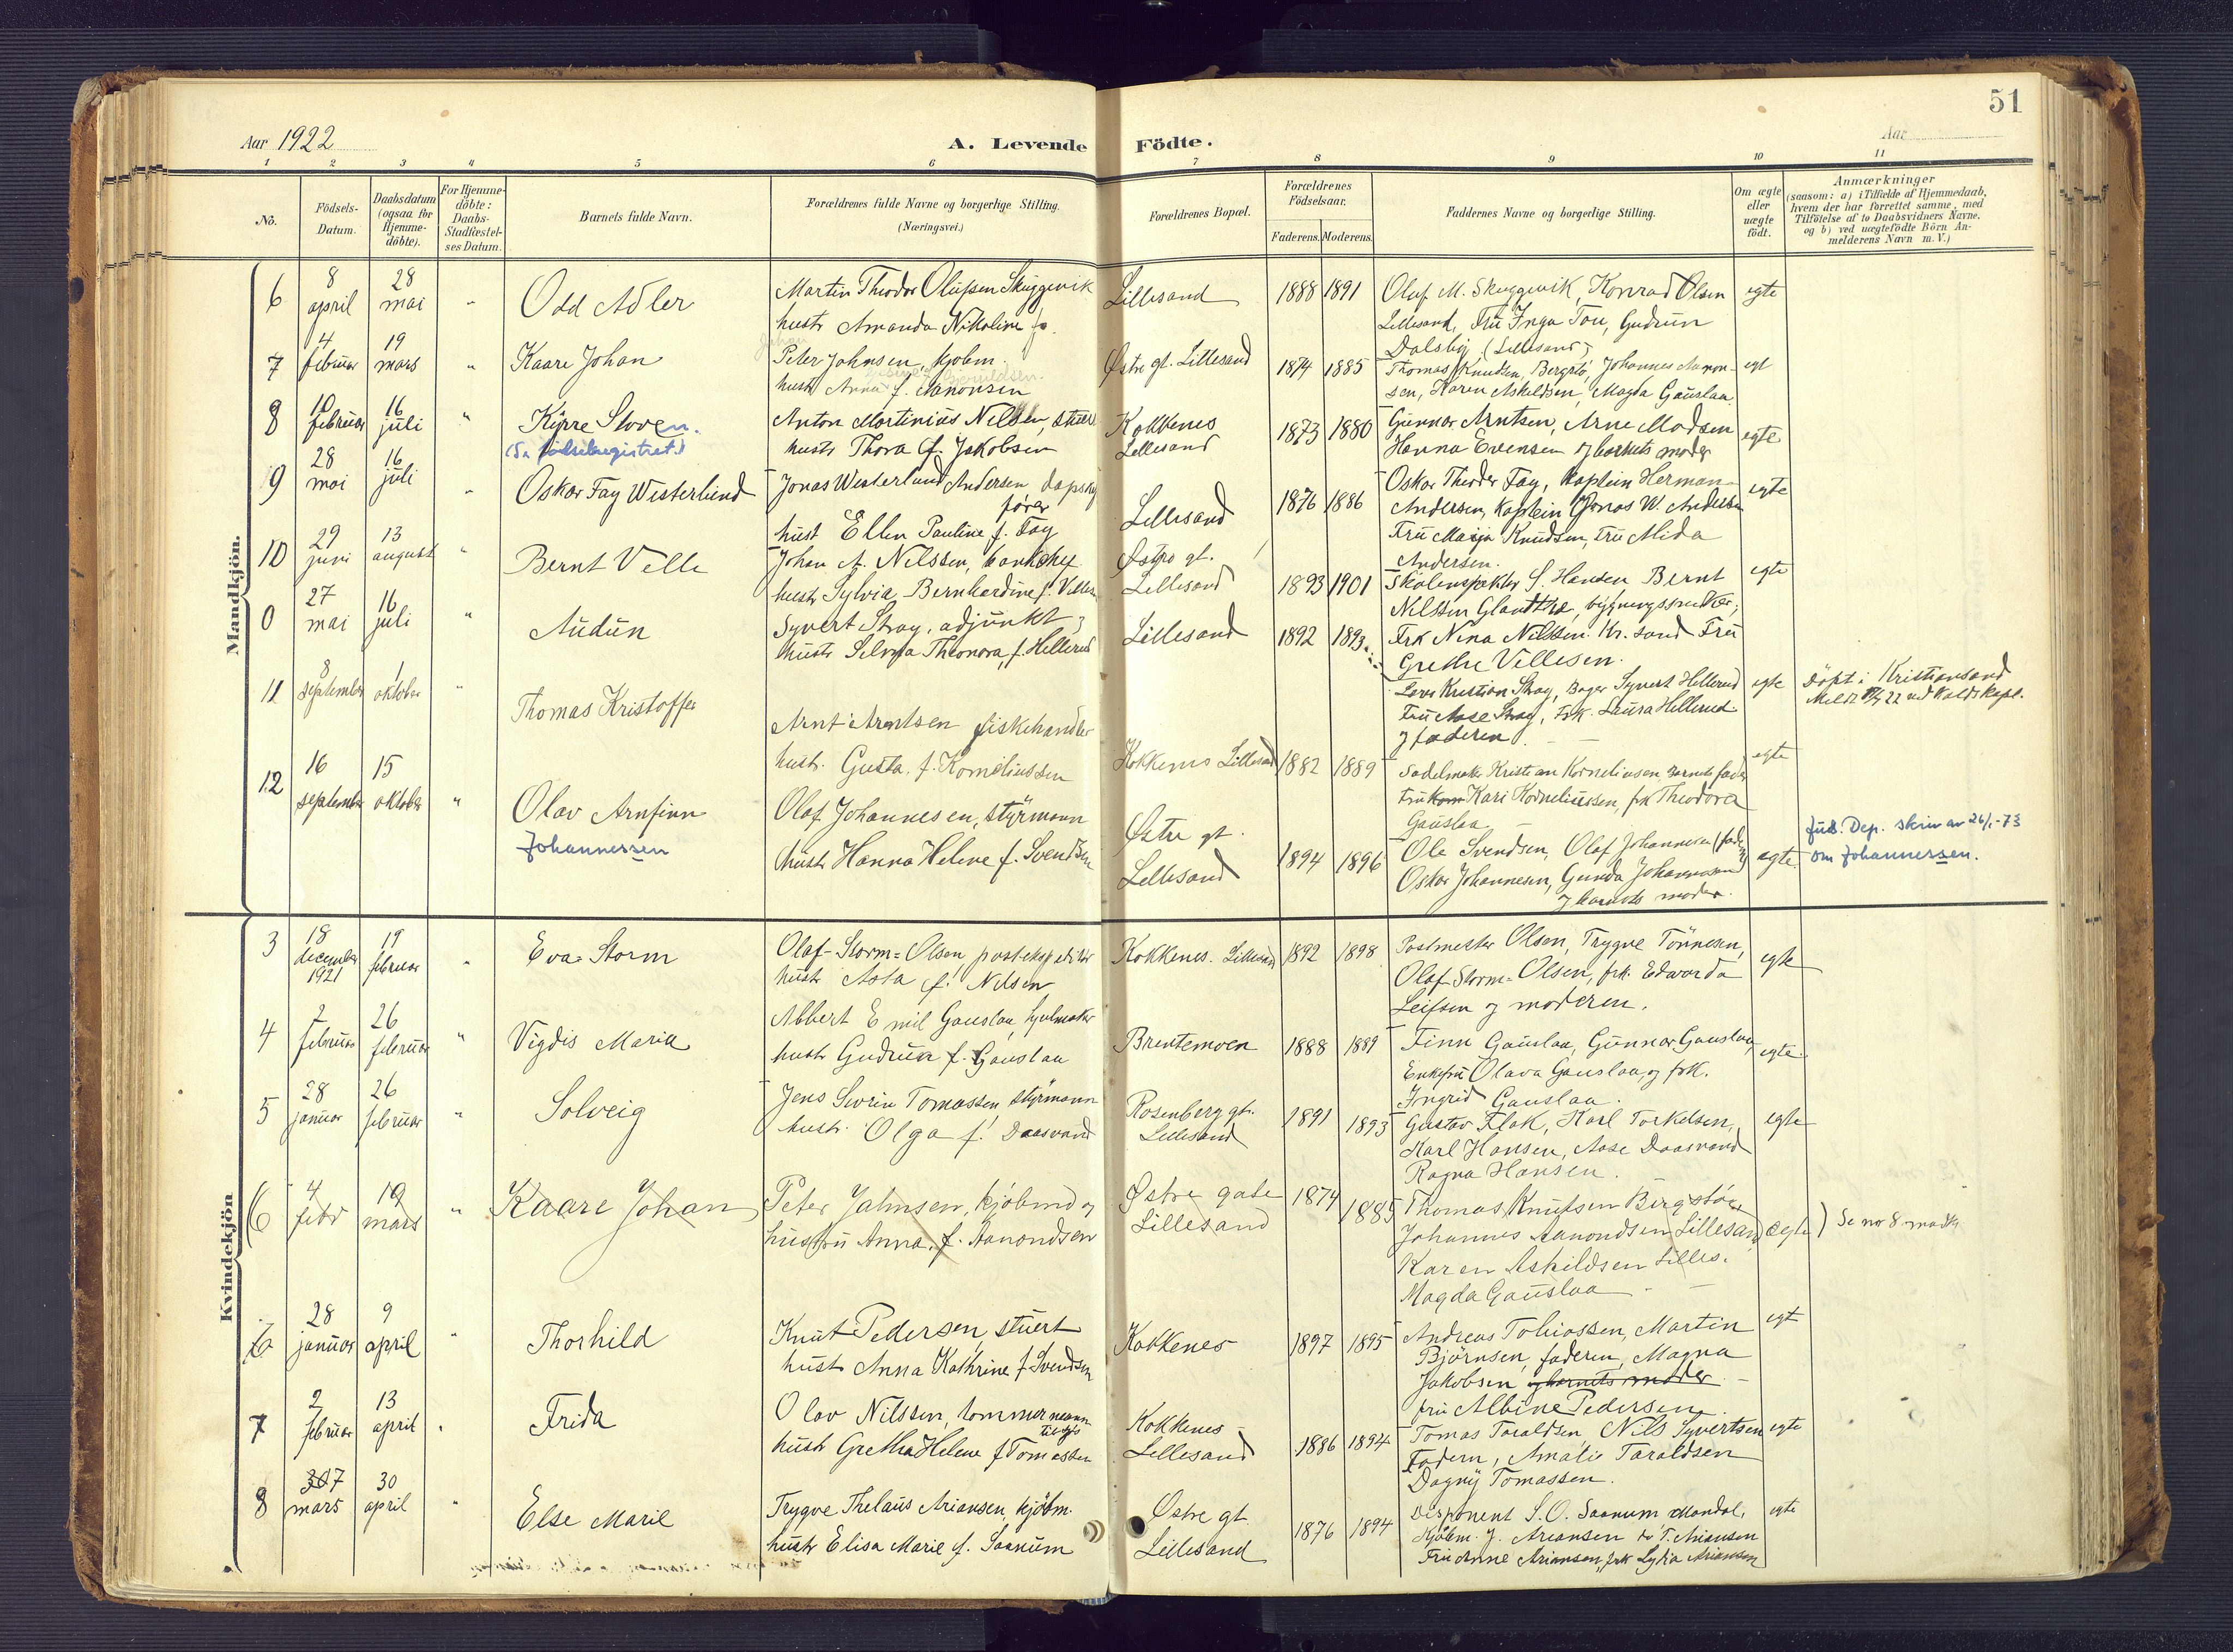 51
Aar 1922
A. Levende Födte.
Aar
1 2 3 4 5 6 7 8 9 10 11
No.
Födsels-Datum.
Daabsdatum (ogsaa for Hjemme-döbte).
For Hjemme-döbte: Daabs-Stadfæstel-ses Datum.
Barnets fulde Navn.
Forældrenes fulde Navne og borgerlige Stilling.
(Næringsvei.)
Forældrenes Bopæl.
Forældrenes Födselsaar.
Faderens. Moderens.
Faddernes Navne og borgerlige Stilling.
Om ægte eller uægte födt.
Anmærkninger
(saasom: a) i Tilfælde af Hjemmedaab,
hvem der har forrettet samme, med
Tilföielse af to Daabsvidners Navne.
og b) ved uægtefödte Börn An-
melderens Navn m. V.)
Mandkjön.
6
8 april
28 mai
"
Odd Adler
Martin Theodor Olufsen Skuggevik
hustr Amanda Nikoline
Lillesand
1888 1891
Oluf M. Skuggevik, Konrad Olsen
Lillesand, Fru Inga Tou, Gudrun
Dalsby (Lillesand)
egte
7
4 februar
19 mars
"
Kaare Johan
Peter Johnsen, kjøbm.
hustr Anna f. Aanonsen
Østre gt. Lillesand
1874 1885
Thomas Knudsen, Bergstø, Johannes Aanon-
sen, Karen Askildsen, Magda Gauslaa
egt
8
10 februar
16 juli
"
Kåre Stoven.
(Se fødselsregistret.)
Anton Martinius Nilsen, stuert
hustr Thora f. Jakobsen
Kokkenes
Lillesand
1873 1880
Gunnar Arntsen, Arne Madsen
Hanna Evensen og barnets moder
egte
9
28 mai
16 juli
"
Oskar Fay Westerlund
Jonas Westerlund Andersen dapskj
fører
hust Ellen Pauline f. Fay
Lillesand
1876 1886
Oskar Theodor Fay, kaptein Herman
Andersen, kaptein Jonas W. Andersen
Fru Marja Knudsen, Fru Alida
Andersen.
egte
10
29 juni
13 august
"
Bernt Velle
Johan A. Nilssen, bankchef
hustr Sylvia Bernhardine f. Villes
Østre gt.
Lillesand
1893 1901
Skoleinspektør S. Hansen Bernt
Nilssen, bygningssnekker,
Frk Nina Nilssen. Kr. sand Fru
Grethe Villesen.
egte
0
27 mai
16 juli
"
Audun
Syvert Stray, adjunkt
hustr Selma Theonora, f. Hellerud
Lillesand
1892 1893
Lars Kristian Stray, Bager Syvert Hellerud
Fru Aase Stray, Frk. Laura Hellerud
og faderen
egte
Döpt i Kristiansand
11
8 september
1 oktober
"
Thomas Kristoffer
Arnt Arntsen fiskehandler
hustr. Gusta. f. Korneliussen
Kokkenes Lillesand
1882 1889
Sadelmaker Kristian Korneliusen, Barnets fader
Fru Kari Korneliussen, frk Theodora
Gauslaa
egte
12
16 september
15 oktober
"
Olav Arnfinn
Johannessen
Olaf Johannesen, styrmann
hustr Hanna Helene f. Svendsen
Østre gt.
Lillesand
1894 1896
Ole Svendsen, Olaf Johannesen (fader)
Oskar Johannesen, Gunda Johannesen
og barnets moder.
egte
Jus. Dep. skriv av 26/1-73
om Johannessen.
Kvindekjön
3
18 december 1921
19 februar
"
Eva Storm
Olaf Storm-Olsen, postekspeditör
hustr Asta f. Nilsen
Kokkenes. Lillesand
1892 1898
Postmester Olsen, Trygve Tönnesen,
Olaf Storm-Olsen, frk. Edvarda
Leifsen og moderen.
egte
4
2 februar
26 februar
"
Vigdis Marie
Albert Emil Gauslaa, hjulmaker
hustr Gudrun f. Gauslaa
Brentemoen
1888 1889
Finn Gauslaa, Gunnar Gauslaa,
Enkefru Olava Gauslaa, og frk.
Ingrid Gauslaa.
egte
5
28 januar
26 februar
"
Solveig
Jens Sevrin Tomassen styrmann
hustr. Olga f. Daasvand
Rosenberg gt.
Lillesand
1891 1893
Gustav Flak, Karl Torkelsen,
Karl Hansen, Aase Daasvand
Ragna Hansen.
egte
(6
4 febr
19 mars
"
Kaare Johan
Peter Jahnsen, kjøbmd og
hustru Anna. f. Aanondsen
Østre gate
Lillesand
1874 1885
Thomas Knutsen Bergstø,
Johannes Aanondsen Lillesand
Karen Askildsen Lilles.
Magda Gauslaa
ægte)
Se no 8 mandk
6
28 januar
9 april
"
Thorhild
Knut Pedersen, stuert
hustr Anna Kathrine f Svendsen
Kokkenes
1897 1895
Andreas Tobiassen, Martin
Björnsen, faderen, Magna
Jakobsen og barnets moder.
fru Albine Pedersen.
egt
7
2 februar
13 april
"
Frida
Olav Nilssen, tommermann
hustr Grethe Helene f Tomassen
Kokkenes
Lillesand
1886 1894
Tomas Taraldsen, Nils Syvertsen
Fadern, Amalie Taraldsen
Dagny Tomassen.
egte
8
307 mars
30 april
"
Else Marie
Trygve Thelaus Ariansen, kjøbm.
hustr Elisa Marie f. Saanum
Østre gt
Lillesand
1876 1894
Disponent S.O. Saanum Mandal,
Kjøbm. J. Ariansen do T. Ariansen
Fru Anne Ariansen, frk Lydia Ariansen
egte